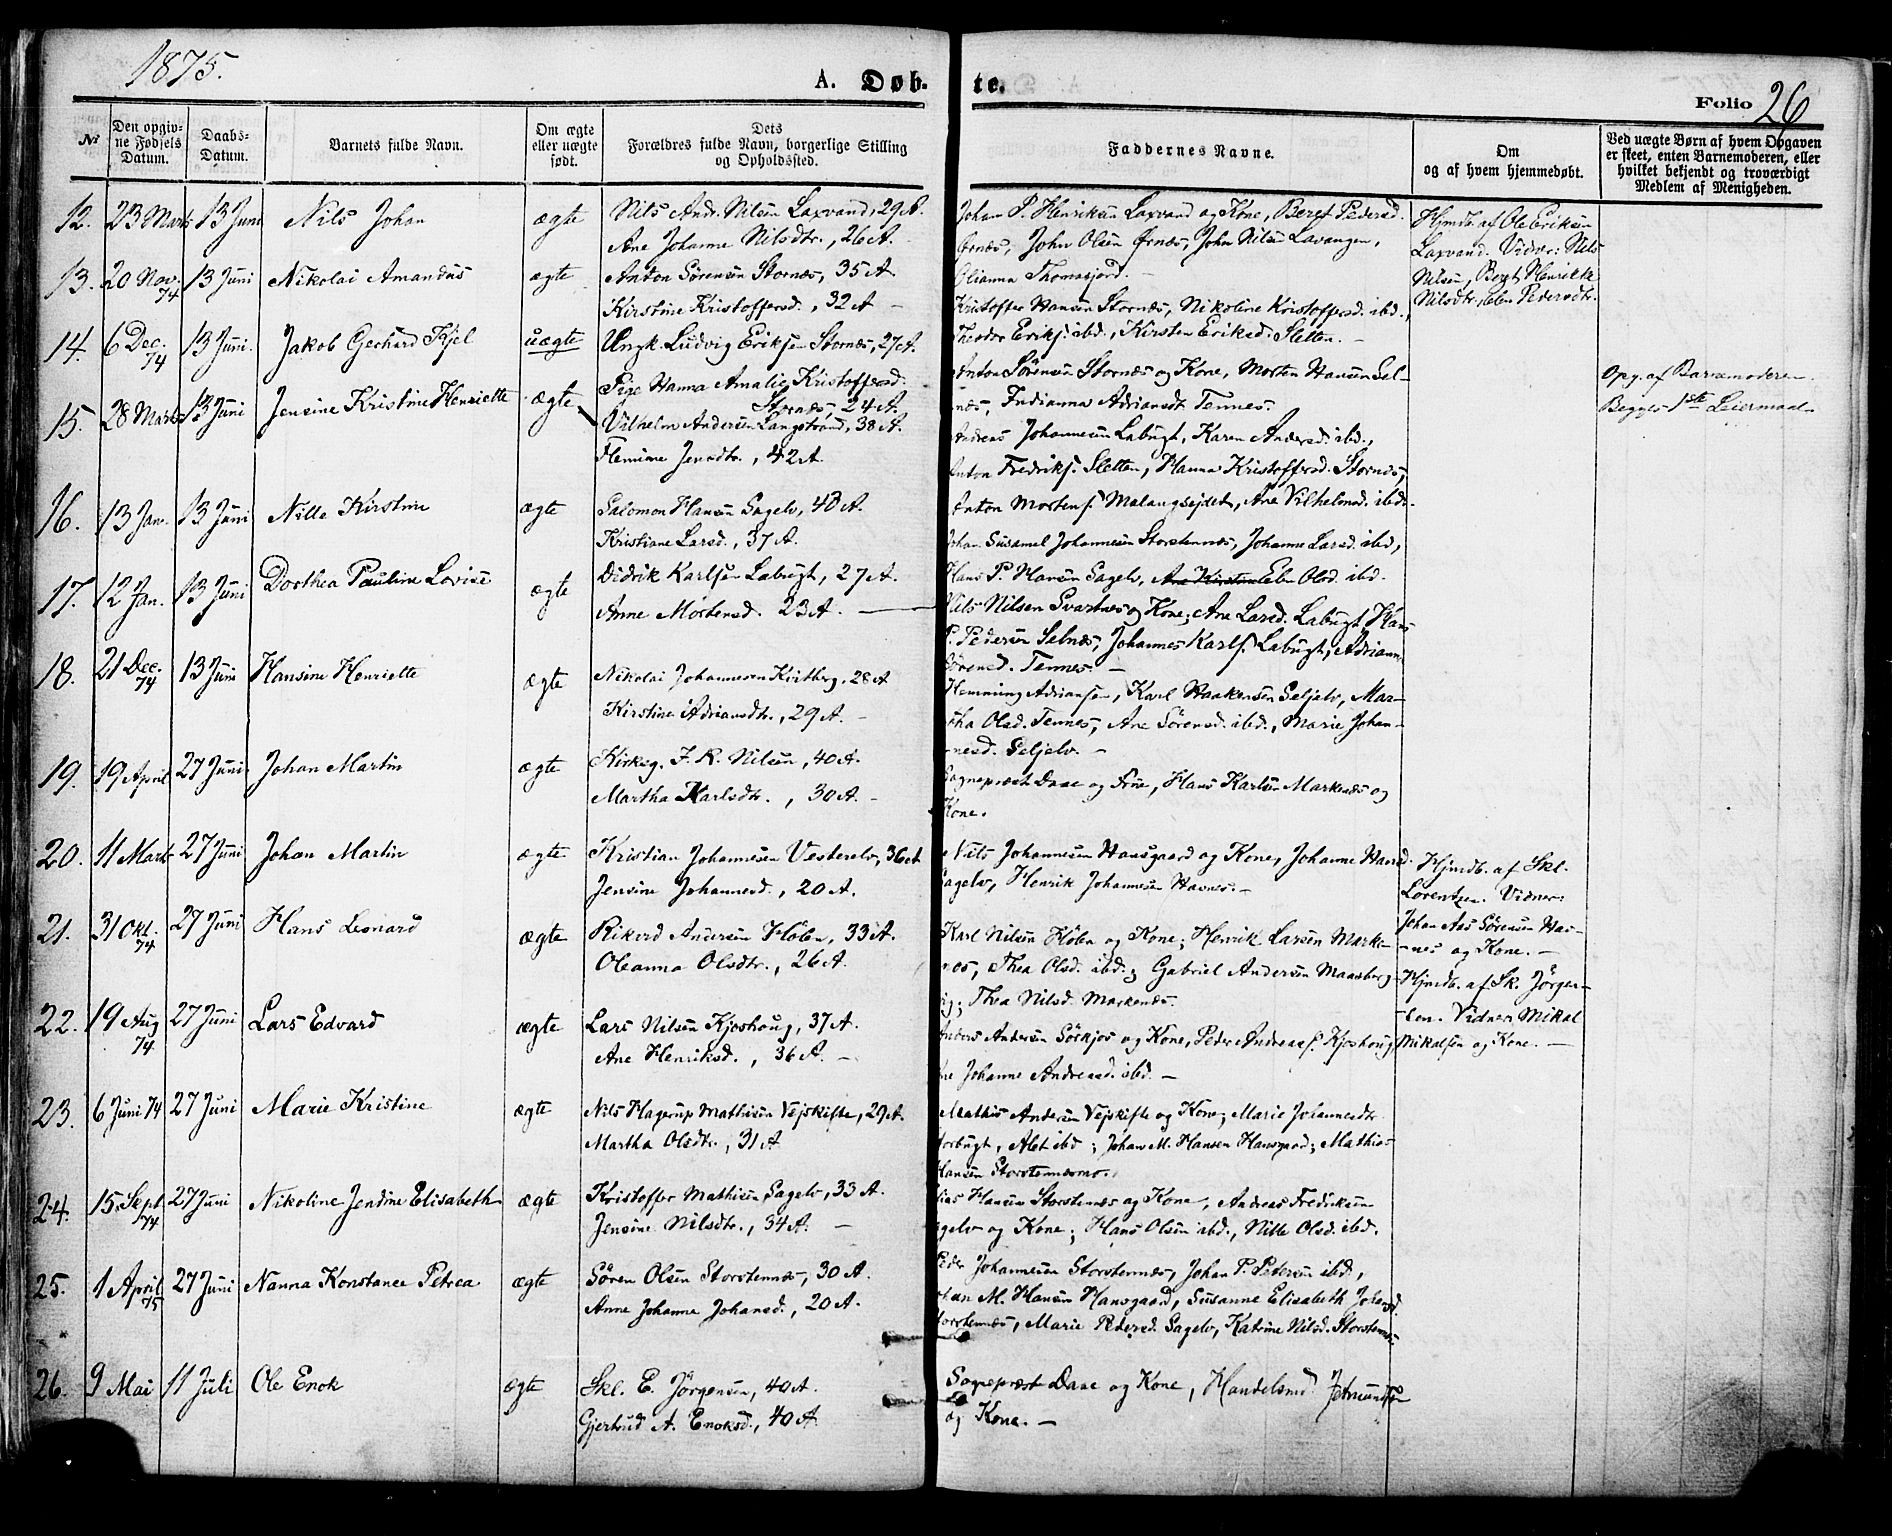 1875.
A. Døb- te.
Folio 26
№
Den opgiv-
ne Fødsels
Datum.
Daabs-
Datum.
Barnets fulde Navn.
Om ægte
eller uægte
født.
Dets
Forældres fulde Navn, borgerlige Stilling
og Opholdssted.
Faddernes Navne.
Om
og af hvem hjemmedøbt.
Ved uægte Børn af hvem Opgaven
er skeet, enten Barnemoderen, eller
hvilket bekjendt og troværdigt
Medlem af Menigheden.
12. 23 Marts 13 Juni Nils Johan ægte Nils Andr. Nilsen Laxvand, 29 A.
Ane Johanne Nilsdtr., 26 A.
Johan P. Henriksen Laxvand og Kone, Beret Pedersd.
Ørnæs, John Olsen Ørnæs, John Nilsen Lavangen,
Olianna Thomasjord.
Hjmdb. af Ole Eriksen
Laxvand. Vidner: Nils
Nilsen, Bergt Henrikke
Nilsdtr., Elen Pedersdtr.
13. 20 Nov. 74 13 Juni Nikolai Amandus ægte Anton Sørensen Stornæs, 35 A.
Kirstine Kristoffersd., 32 A –
Kristoffer Hansen Stornæs, Nikoline Kristoffersd. ibd.,
Theodor Eriks. ibd., Kirsten Eriksd. Sletten. –
14. 6 Dec. 74 13 Juni. Jakob Gerhard Kjel uægte Ungk. Ludvig Eriksen Stornæs, 27 A.
Pige Hanna Amalie Kristoffersd.
Stornæs, 24 A.
Anton Sørensen Stornæs og Kone, Morten Hansen Sel-
næs, Indianna Adriansdt. Tennes.
Opg. af Barnemoderen.
Begges 1ste Leiermaal.
15. 28 Marts 13 Juni Jensine Kristine Henriette ægte Vilhelm Andersen Langstrand, 38 A.
Flemine Jensdtr., 42 A.
Andreas Johannesen Labugt, Karen Andersd. ibd.,
Anton Fredriks. Sletten, Hanna Kristoffersd. Stornæs,
Anton Mortens. Malangsejdet, Ane Vilhelmsd. ibd.
16. 13 Jan. 13 Juni Nille Kirstine ægte Salomon Hansen Sagelv, 40 A.
Kristiane Larsd., 37 A.
Johan Susamel Johannesen Storstennæs, Johanne Larsd. ibd.,
Hans P. Hansen Sagelv, Ane Kirstine Elen Olsd. ibd.
17. 12 Jan. 13 Juni Dorthea Pauline Lovise ægte Didrik Karlsen Labugt, 27 A.
Anne Mortensd. 23 A. –
Nils Nilsen Svartnæs og Kone; Ane Larsd. Labugt, Hans
P. Pedersen Selnæs, Johannes Karls. Labugt, Adrianna
Sørensd. Tennes. –
18. 21 Dec. 74 13 Juni Hansine Henriette ægte Nikolai Johannesen Kvitberg, 28 A
Kirstine Adriansdtr., 29 A. –
Hemming Adriansen, Karl Haakensen Seljelv, Mar-
tha Olsd. Tennes, Ane Sørensd. ibd., Marie Johan-
nesd. Seljelv. –
19. 19 April 27 Juni Johan Martin ægte Kirksg. J. R. Nilsen, 40 A.
Martha Karlsdtr., 30 A. –
Sognepræst Daae og Frue, Hans Karlsen Markenæs og
Kone.
20. 11 Mart 27 Juni Johan Martin ægte Kristian Johannesen Vesterelv, 36 A
Jensine Johannesd., 20 A.
Nils Johannesen Hansgaard og Kone, Johanne Hansd.
Sagelv, Henrik Johannesen Havnes. –
Hjmdb. af Skl.
Lorentzen. Vidner:
Johan Aas Sørensen Hav-
nes og Kone. –
21. 31 Okt. 74 27 Juni Hans Leonard ægte Rikerd Andersen Holen, 33 A.
Oleanna Olsdtr., 26 A.
Karl Nilsen Holen og Kone; Henrik Larsen Marke-
næs, Thea Olsd. ibd.; Gabriel Andersen Maasberg-
vig; Thea Nilsd. Markenæs.
Hjmdb. af Sk. Jørgen-
sen. Vidner: Mikal
Mikalsen og Kone. –
22. 19 Aug 74 27 Juni Lars Edvard ægte Lars Nilsen Kjoshoug, 37 A.
Ane Henriksd., 36 A. –
Anders Andersen Sørkjos og Kone, Peder Andreass. Kjoshoug,
Ane Johanne Andreasd. ibd. –
23. 6 Juni 74 27 Juni Marie Kristine ægte Nils Hagerup Mathisen Vejskifte, 29 A.
Martha Olsdtr., 31 A
Mathis Andersen Vejskifte og Kone; Marie Johannesdtr.
Norbugt, Alet ibd; Johan M. Hansen Hansgaard; Mathias
Hansen Storstennæsmo.
24. 15. Sept 74 27 Juni Nikoline Jensine Elisabeth ægte Kristoffer Mathisen Sagelv, 33 A.
Jensine Nilsdtr., 34 A. –
Elias Hansen Storstennæs og Kone, Andreas Fredriksen
Sagelv og Kone; Hans Olsen ibd., Nille Olsd. ibd.
25. 1 April 75 27 Juni Nanna Konstance Petrea ægte Søren Olsen Storstennæs, 30 A.
Anne Johanne Johansd., 20 A.
Peder Johannesen Storstennæs, Johan P. Petersen ibd.,
Johan M. Hansen Hansgaard, Susanne Elisabeth Johansd.
Storstennæs, Marie Pedersd. Sagelv, Katrine Nilsd. Storstennæs
26. 9 Mai 11 Juli Ole Enok ægte Skl. E. Jørgensen, 40 A.
Gjertrud A. Enoksd., 40 A.
Sognepræst Daae og Kone, Handelsmd.
og Kone. –